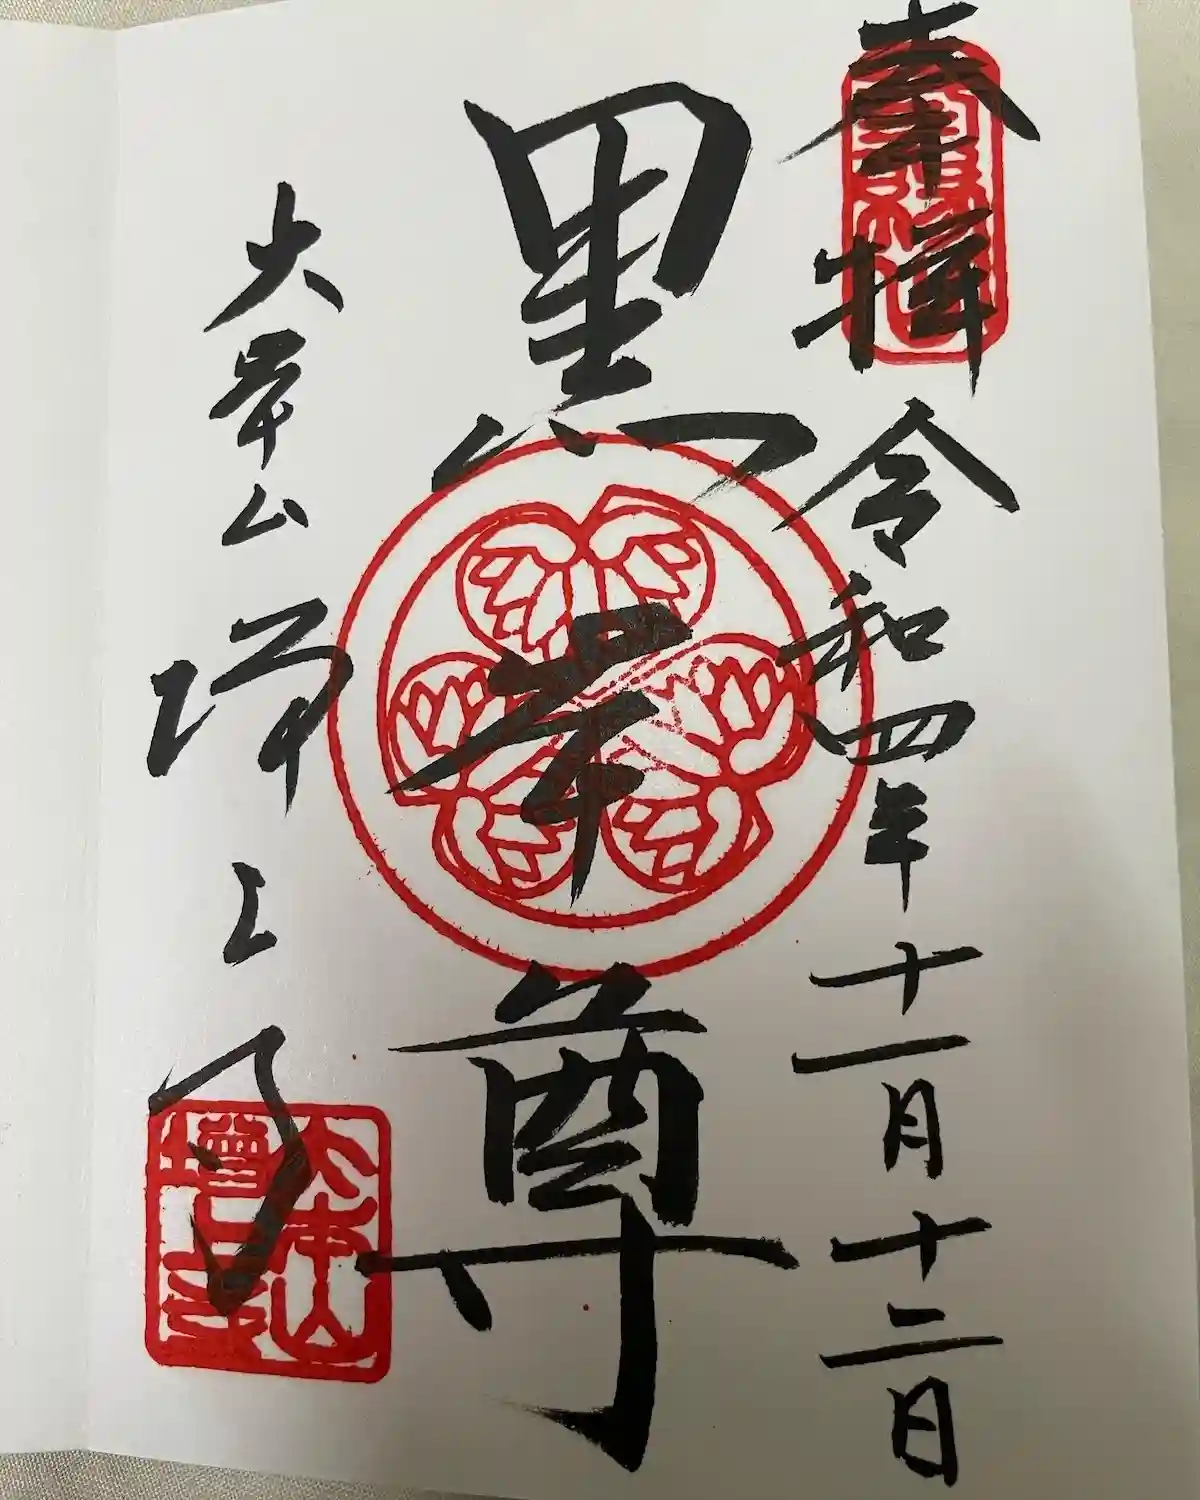 奉拝 令和四年十一月十二日
黒本尊
大本山 増上寺
大本山
増上寺